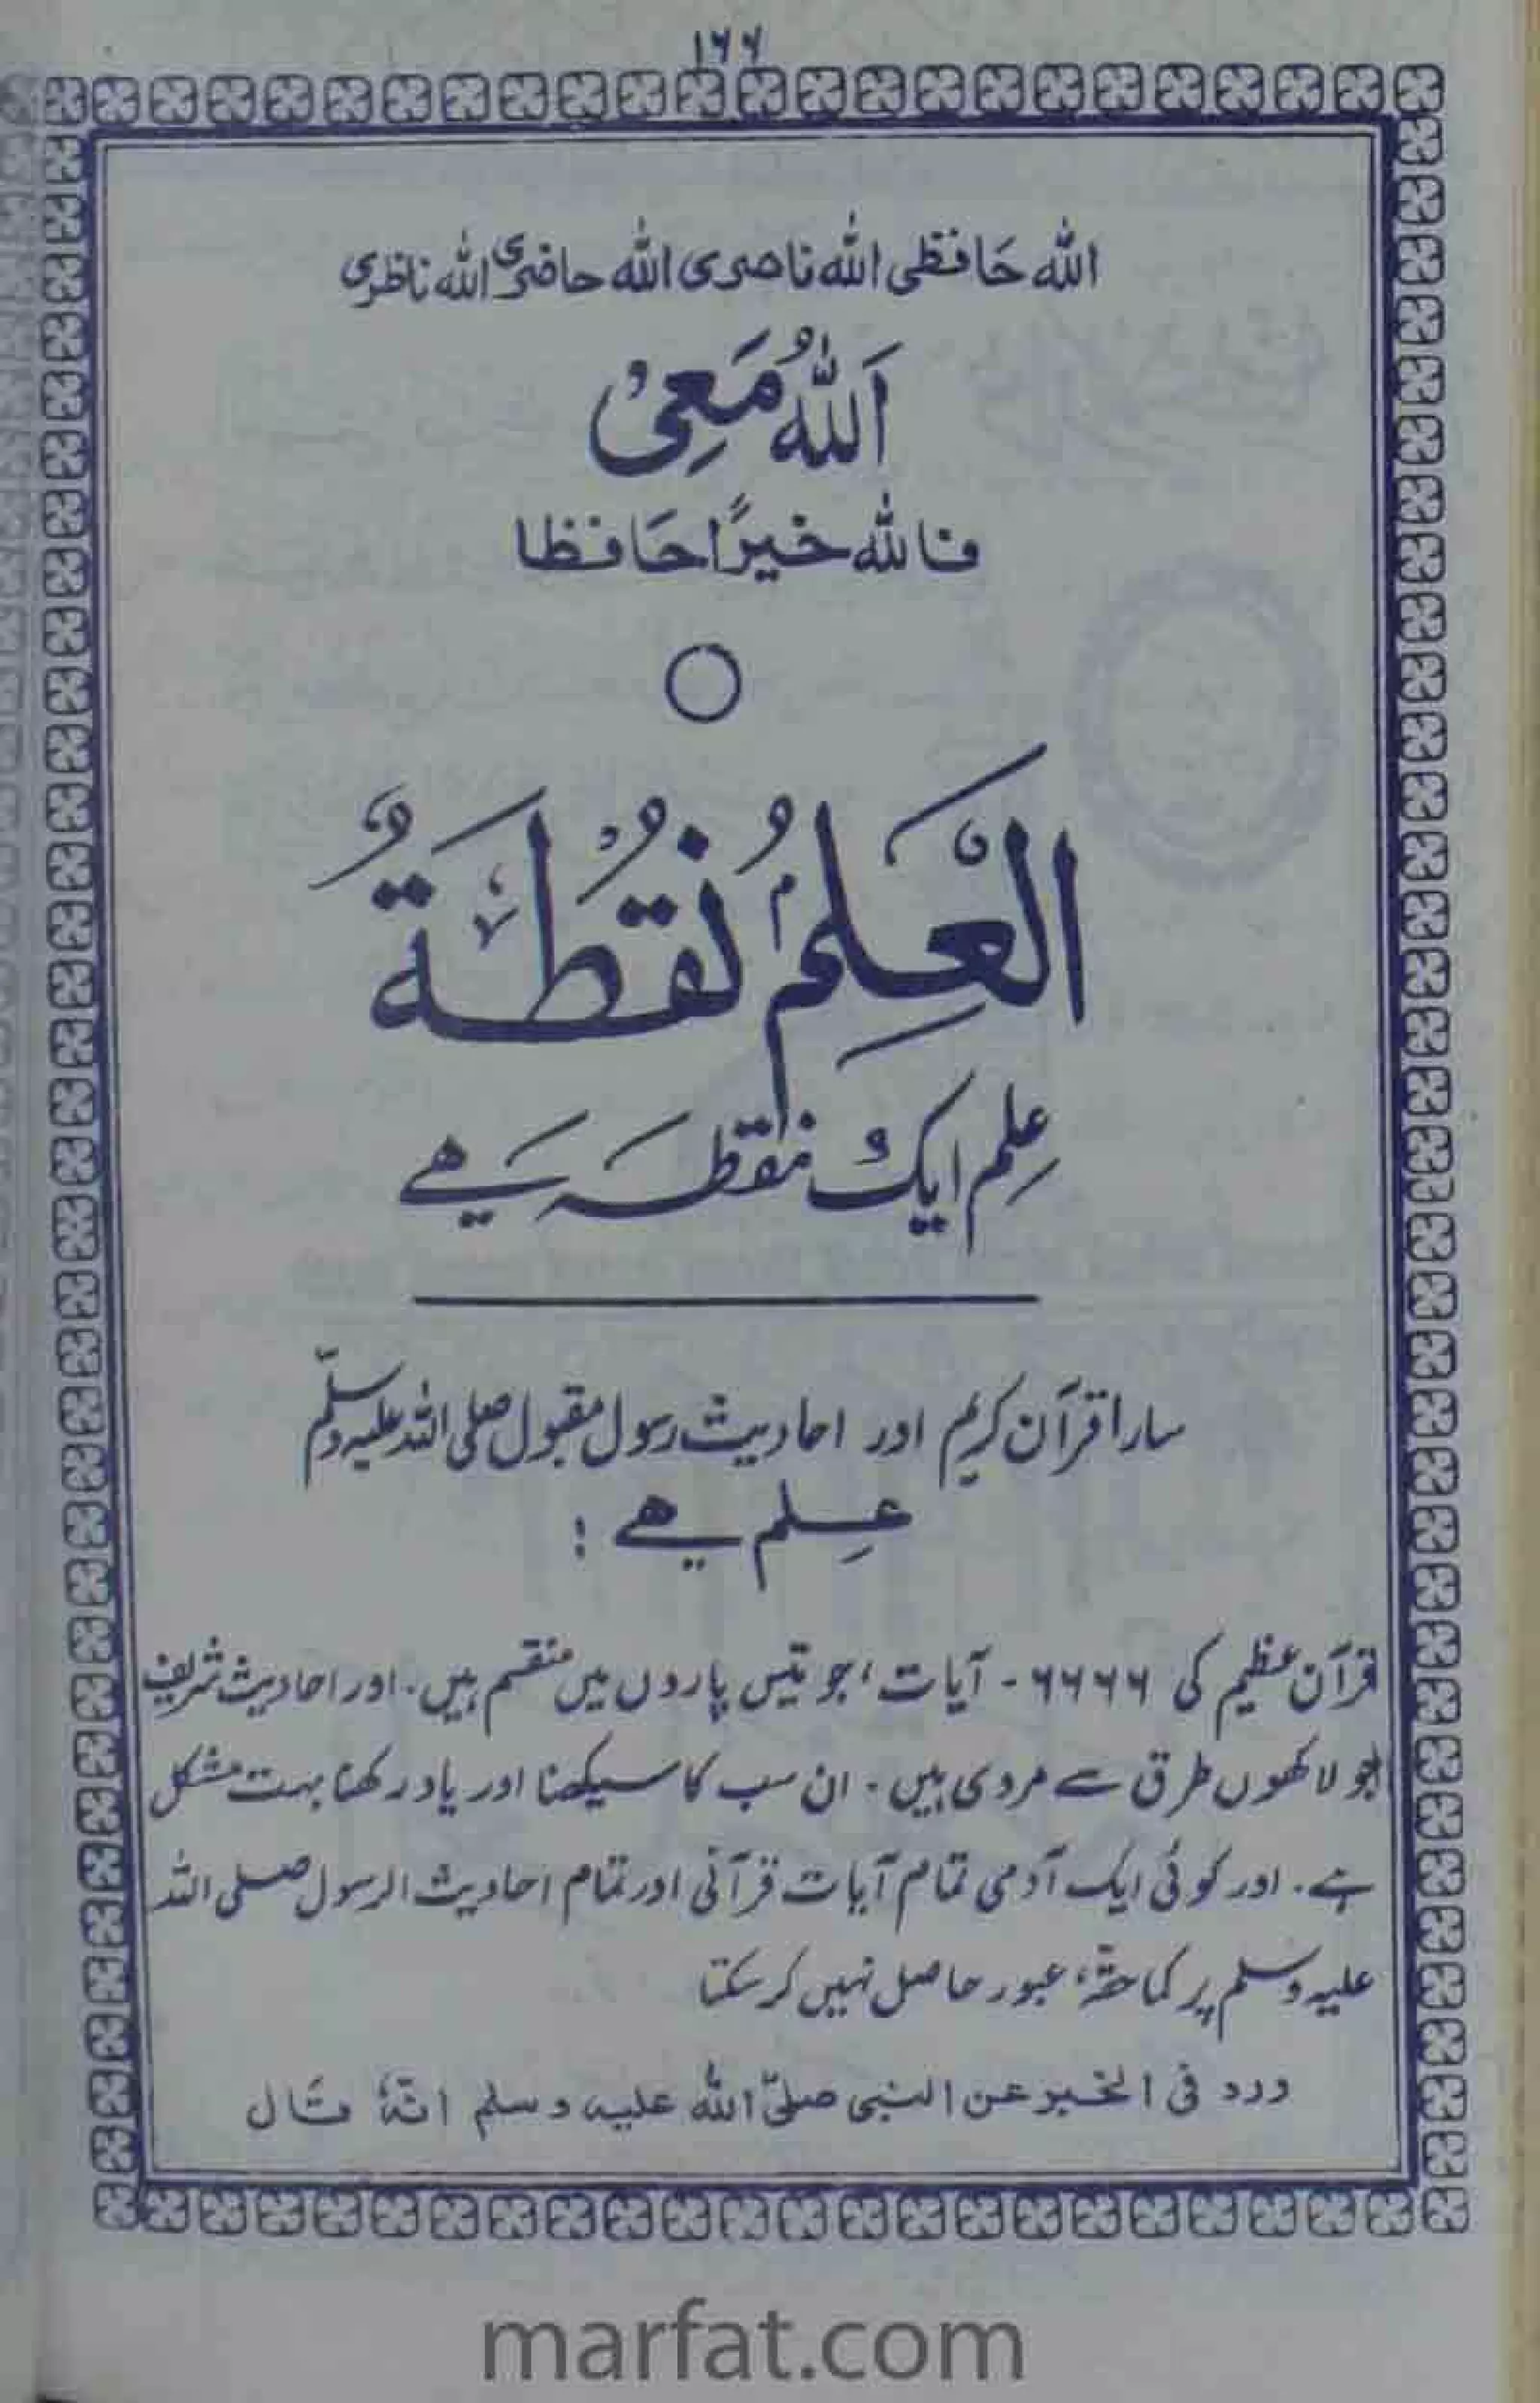 ۱۶۶
اللہ حَافظی اللہ ناصری اللہ حاضری اللہ ناظری
اَللّٰہُ مَعِیْ
فاللہ خیرًا حَافظا
○
العِلمُ نُقطَةٌ
عِلم ایک نقطہ ہے
سارا قرآن کریم اور احادیث رسول مقبول صلی اللہ علیہ وسلّم
عِلم ہے :
قرآن عظیم کی ۶۶۶۶ - آیات ، جو تیس پاروں میں منقسم ہیں . اور احادیث شریف
جو لاکھوں طرق سے مروی ہیں . ان سب کا سیکھنا اور یاد رکھنا بہت مشکل
ہے . اور کوئی ایک آدمی تمام آیات قرآنی اور تمام احادیث الرسول صلی اللہ
علیہ وسلم پر کما حقہٗ، عبور حاصل نہیں کر سکتا
ورد فی الخبر عن النبی صلیّ اللہ علیہ وسلم انّہٗ قَال
marfat.com